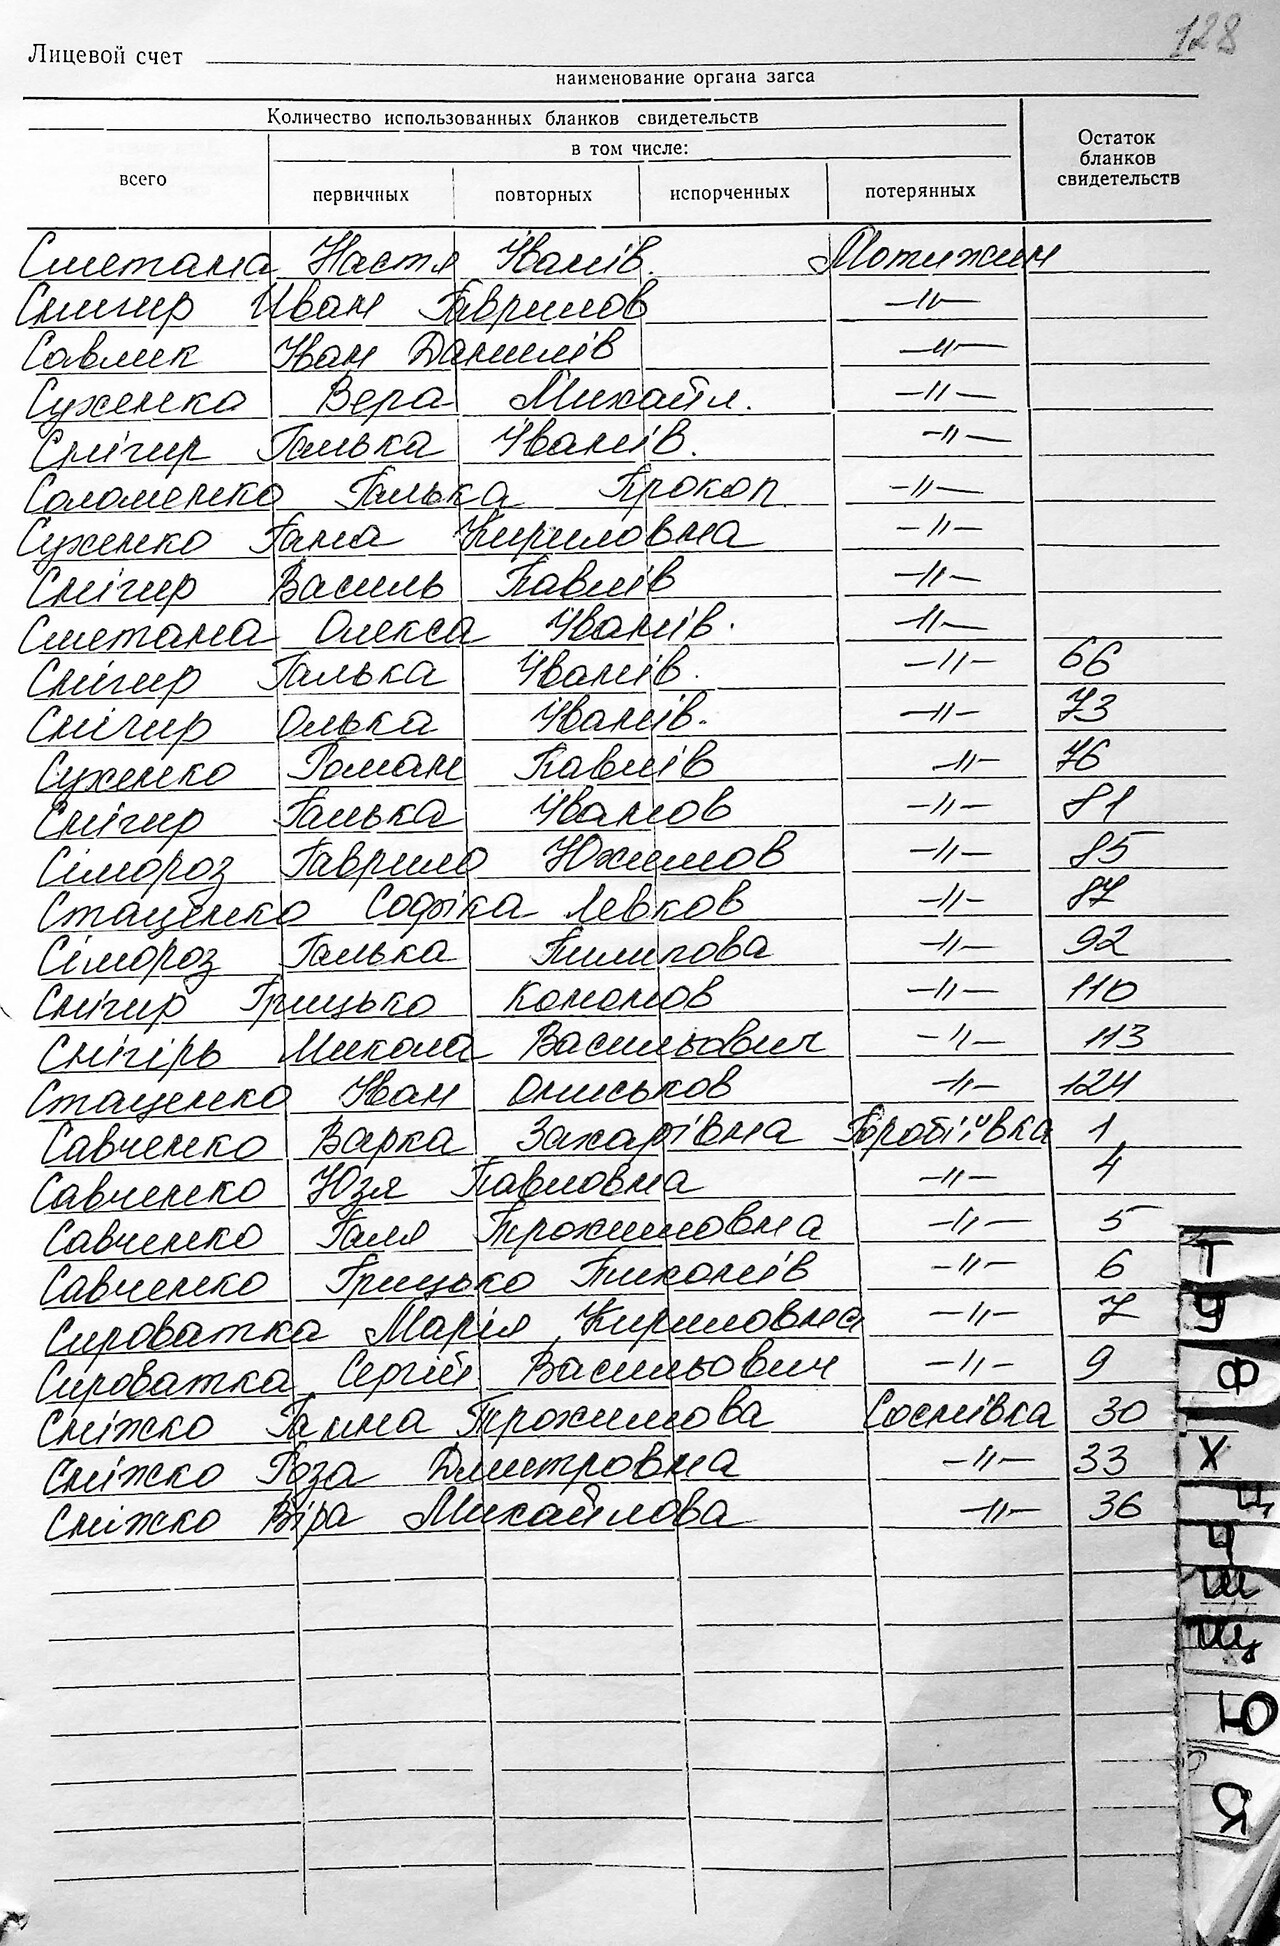 128
Лицевой счет
наименование органа загса
Количество использованных бланков свидетельств
в том числе:
всего
первичных
повторных
испорченных
потерянных
Остаток
бланков
свидетельств
Сметана Настя Іванів. Мотижин
Снигир Иван Гаврилов -"-
Савлик Іван Данилів -"-
Сухенко Вера Михайл. -"-
Снігир Галька Іванів. -"-
Соломенко Галька Прокоп -"-
Сухенко Гана Кириловна -"-
Снігир Василь Павлів -"-
Сметана Олекса Іванів. -"-
Снігир Галька Іванів. -"- 66
Снігир Олька Іванів. -"- 73
Сухенко Роман Павлів -"- 76
Снігир Галька Іванов -"- 81
Сімороз Гаврило Юхимов -"- 85
Стаценко Софіка Левков -"- 87
Сімороз Галька Пилипова -"- 92
Снігир Грицько Кононов -"- 110
Снігірь Микола Васильович -"- 113
Стаценко Іван Ониськов -"- 124
Савченко Варка Захарівна Горобіївка 1
Савченко Юзя Павловна -"- 4
Савченко Галя Трохимовна -"- 5
Савченко Грицько Тихонів -"- 6
Сироватка Марія Кириловна -"- 7
Сироватка Сергій Васильович -"- 9
Сніжко Ганна Трохимова Соснівка 30
Сніжко Роза Дмитровна -"- 33
Сніжко Віра Михайлова -"- 36
Т
У
Ф
Х
Ц
Ч
Ш
Щ
Ю
Я